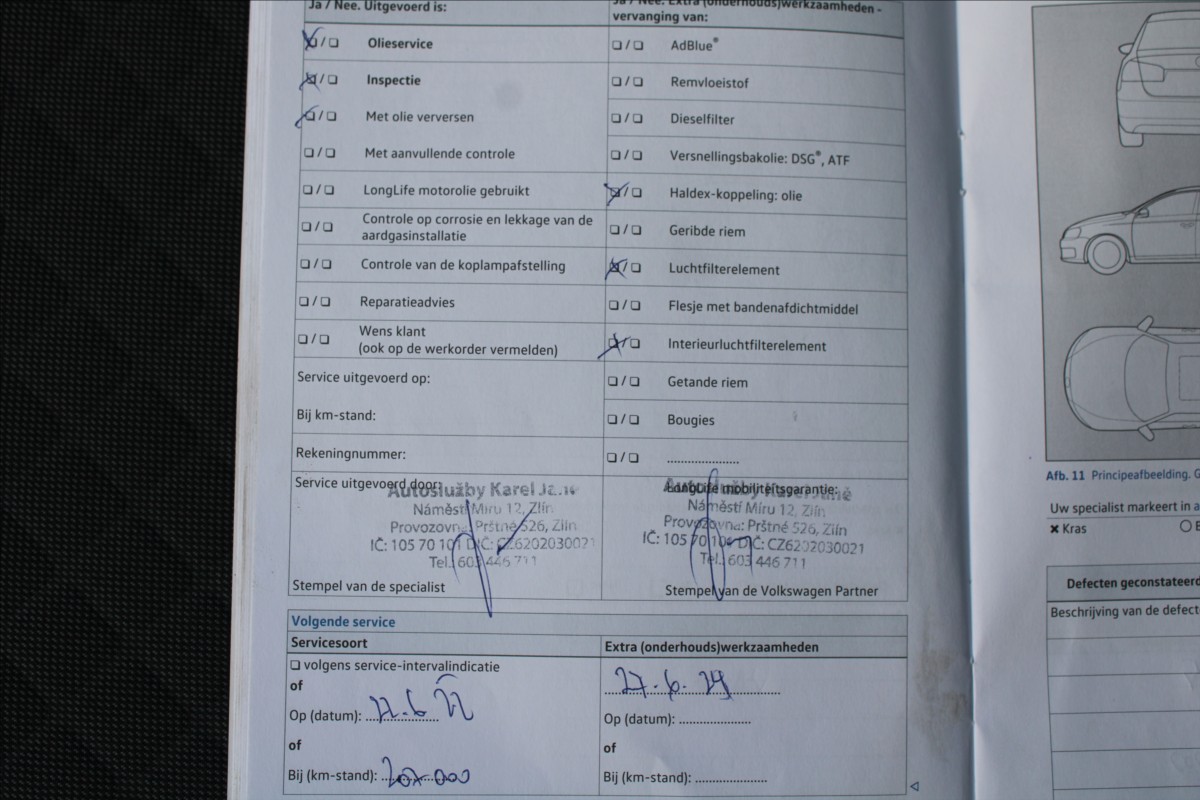 Ja / Nee. Uitgevoerd is:
Olieservice
Inspectie
Met olie verversen
Met aanvullende controle
LongLife motorolie gebruikt
Controle op corrosie en lekkage van de
aardgasinstallatie
Controle van de koplampafstelling
Reparatieadvies
Wens klant
(ook op de werkorder vermelden)
Service uitgevoerd op:
Bij km-stand:
Rekeningnummer:
Service uitgevoerd door:
Autoslužby Karel
Náměstí Míru 12, Zlín
Provozovna: Prštné 526, Zlín
IČ: 105 70 101 DIČ: CZ6202030021
Tel.: 603 446 711
Stempel van de specialist
Ja / Nee. Extra (onderhouds)werkzaamheden -
vervanging van:
AdBlue®
Remvloeistof
Dieselfilter
Versnellingsbakolie: DSG®, ATF
Haldex-koppeling: olie
Geribde riem
Luchtfilterelement
Flesje met bandenafdichtmiddel
Interieurluchtfilterelement
Getande riem
Bougies
LongLife mobiliteitsgarantie:
Náměstí Míru 12, Zlín
Provozovna: Prštné 526, Zlín
IČ: 105 70 101 DIČ: CZ6202030021
Tel.: 603 446 711
Stempel van de Volkswagen Partner
Volgende service
Servicesoort
volgens service-intervalindicatie
of
Op (datum):
of
Bij (km-stand):
Extra (onderhouds)werkzaamheden
Op (datum):
of
Bij (km-stand):
Afb. 11 Principeafbeelding.
Uw specialist markeert in
Kras
Defecten geconstateerd
Beschrijving van de